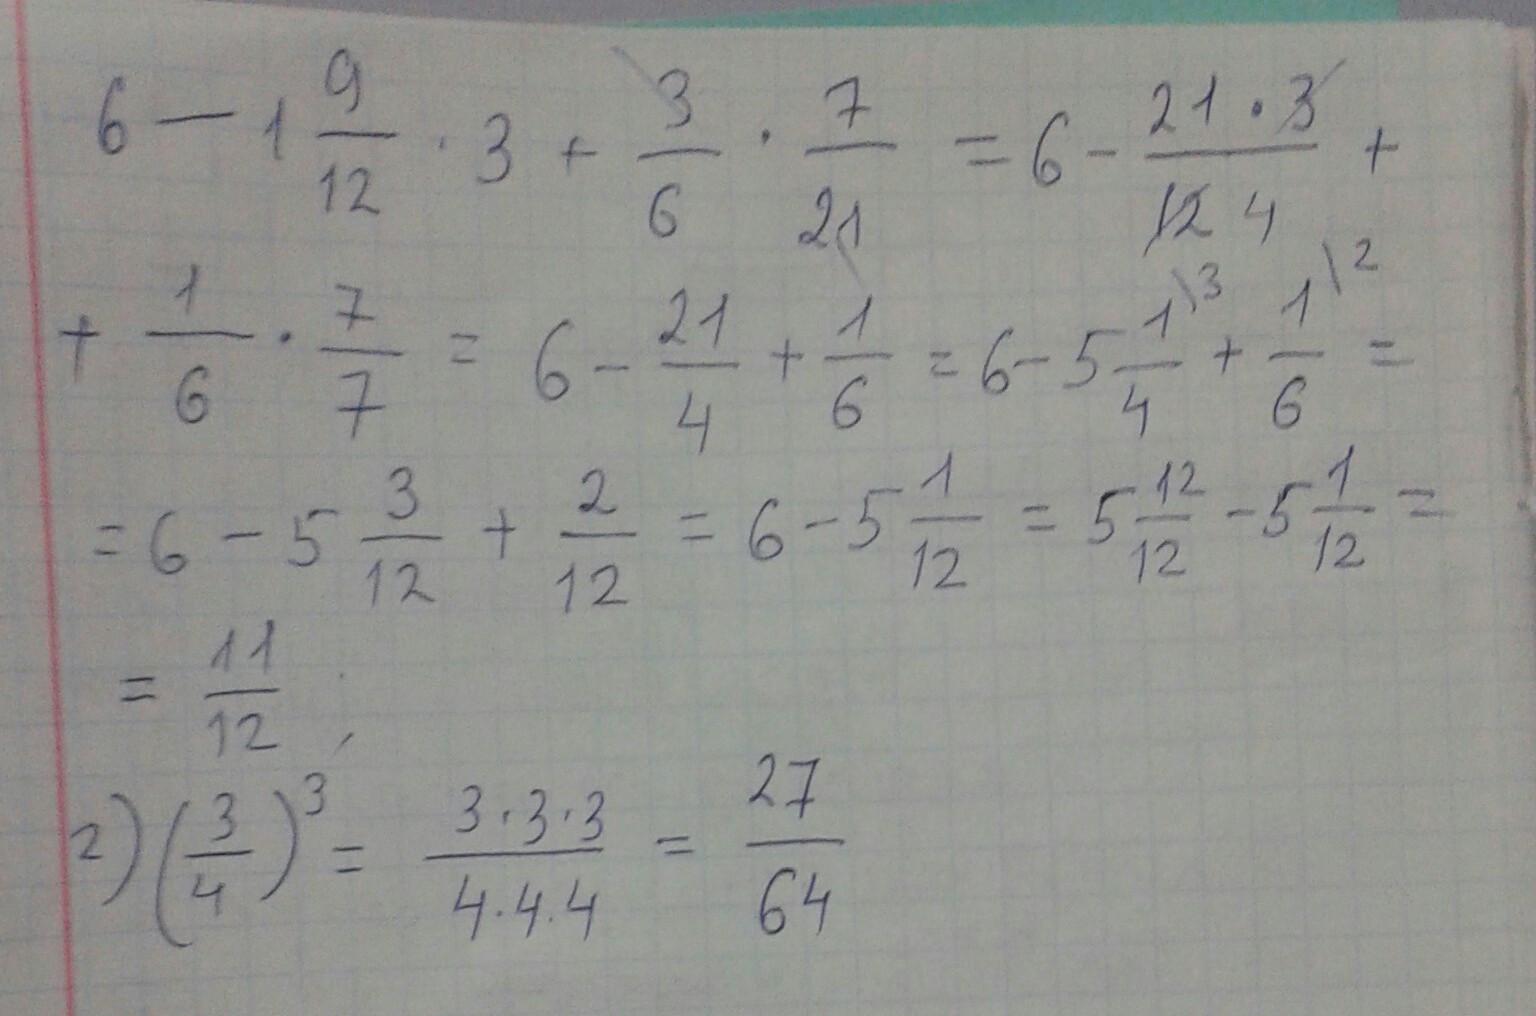 6 - 1 9/12 · 3 + 3/6 · 7/21 = 6 - 21 · 3/12 4 +
+ 1/6 · 7/7 = 6 - 21/4 + 1/6 = 6 - 5 1\3/4 + 1\2/6 =
= 6 - 5 3/12 + 2/12 = 6 - 5 1/12 = 5 12/12 - 5 1/12 =
= 11/12 ;
2) (3/4)³ = 3·3·3/4·4·4 = 27/64